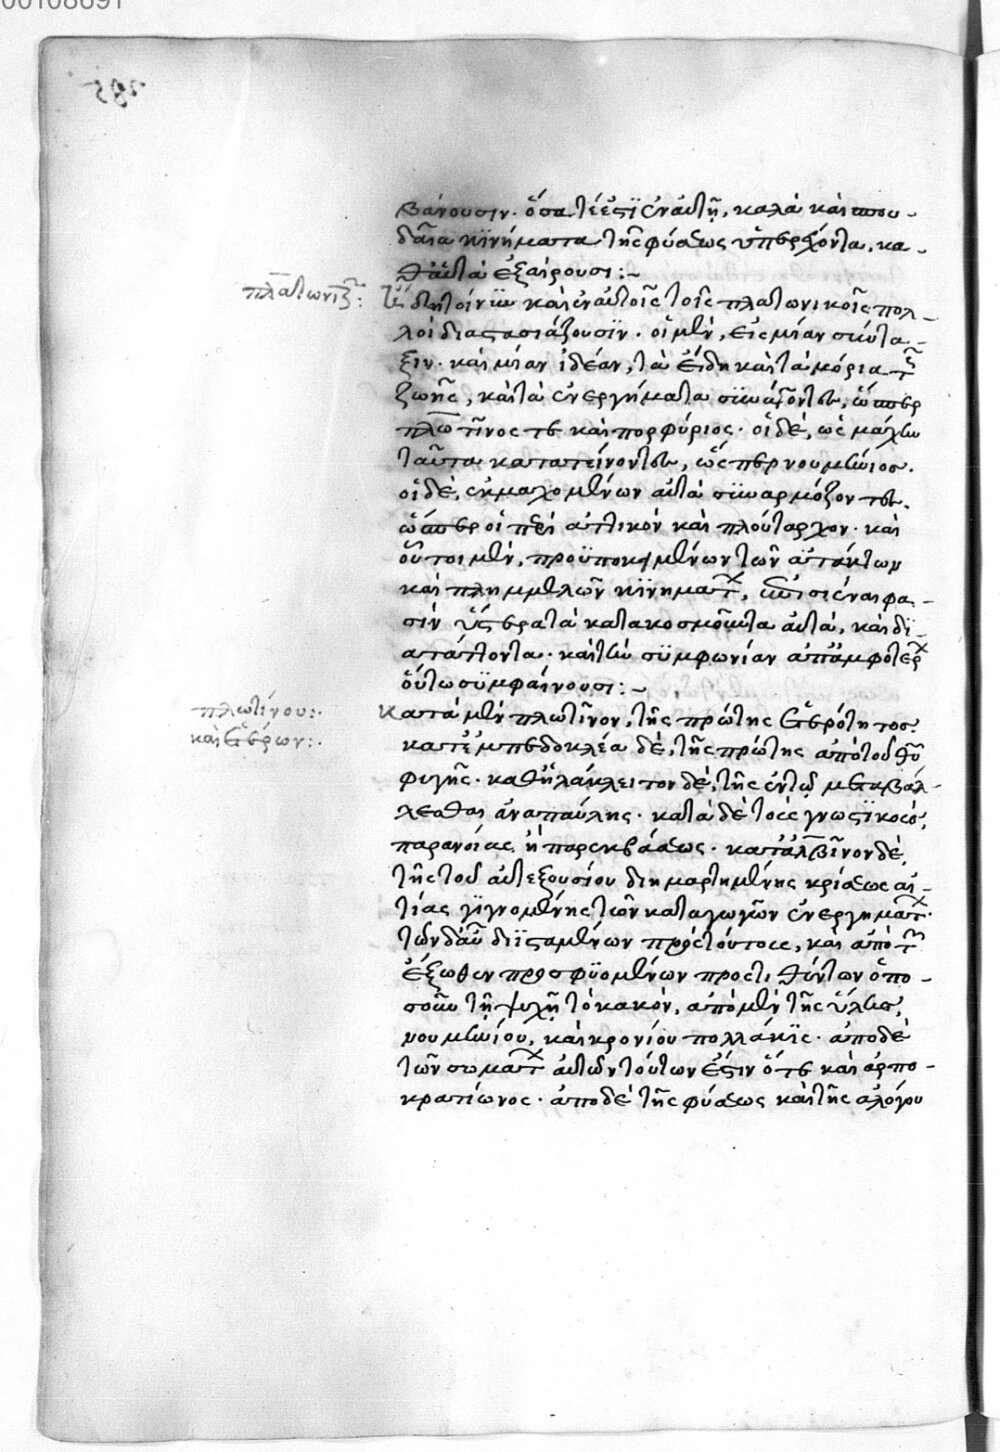 00108691
285
βάνουσιν· ὅσα τέ ἐστιν ἐν αὐτῇ, καλὰ καὶ σπου-
δαῖα κινήματα τῆς φύσεως ὑπερέχοντα, κα-
θ' αὑτὰ ἐξαίρουσι:~
ἤδη τοίνυν καὶ ἐν αὐτοῖς τοῖς πλατωνικοῖς πολ-
λοὶ διαστασιάζουσιν· οἱ μὲν, εἰς μίαν σύντα-
ξιν· καὶ μίαν ἰδέαν, τὰ εἴδη καὶ τὰ μόρια τῆς
ζωῆς, καὶ τὰ ἐνεργήματα συνάγοντες, ὥσπερ
πλωτῖνός τε καὶ πορφύριος· οἱ δὲ, ὡς μάχην
ταῦτα κατατείνοντες, ὥσπερ νουμήνιος.
οἱ δὲ, ἐκ μαχομένων αὐτὰ συναρμόζοντες.
ὥσπερ οἱ περὶ ἀττικὸν καὶ πλούταρχον· καὶ
οὗτοι μὲν, προϋποκειμένων τῶν ἀτάκτων
καὶ πλημμελῶν κινημάτων, ἐπεισιέναι φα-
σὶν ὕστερα τὰ κατακοσμοῦντα αὐτὰ, καὶ δι-
ατάττοντα· καὶ τὴν συμφωνίαν ἀπ' ἀμφοτέρων
οὕτω συμφαίνουσι:~
κατὰ μὲν πλωτῖνον, τῆς πρώτης ἑτερότητος.
κατ' ἐμπεδοκλέα δὲ, τῆς πρώτης ἀπὸ τοῦ θεοῦ
φυγῆς· καθ' ἡράκλειτον δὲ, τῆς ἐν τῷ μεταβάλ-
λεσθαι ἀναπαύλης· κατὰ δὲ τοὺς γνωστικοὺς,
παρανοίας ἢ παρεκβάσεως· κατ' ἀλβῖνον δὲ,
τῆς τοῦ αὐτεξουσίου διημαρτημένης κρίσεως αἰ-
τίας γιγνομένης τῶν καταγωγῶν ἐνεργημάτων·
τῶν δ' αὖ διισταμένων πρὸς τούτους, καὶ ἀπὸ τῶν
ἔξωθεν προσφυομένων προστιθέντων ὁπο-
σοῦν τῇ ψυχῇ τὸ κακὸν, ἀπὸ μὲν τῆς ὕλης,
νουμηνίου, καὶ κρονίου πολλάκις· ἀπὸ δὲ
τῶν σωμάτων αὐτῶν τούτων ἔστιν ὅτε καὶ ἁρπο-
κρατίωνος· ἀπὸ δὲ τῆς φύσεως καὶ τῆς ἀλόγου
πλωτίνου:·
καὶ ἑτέρων:·